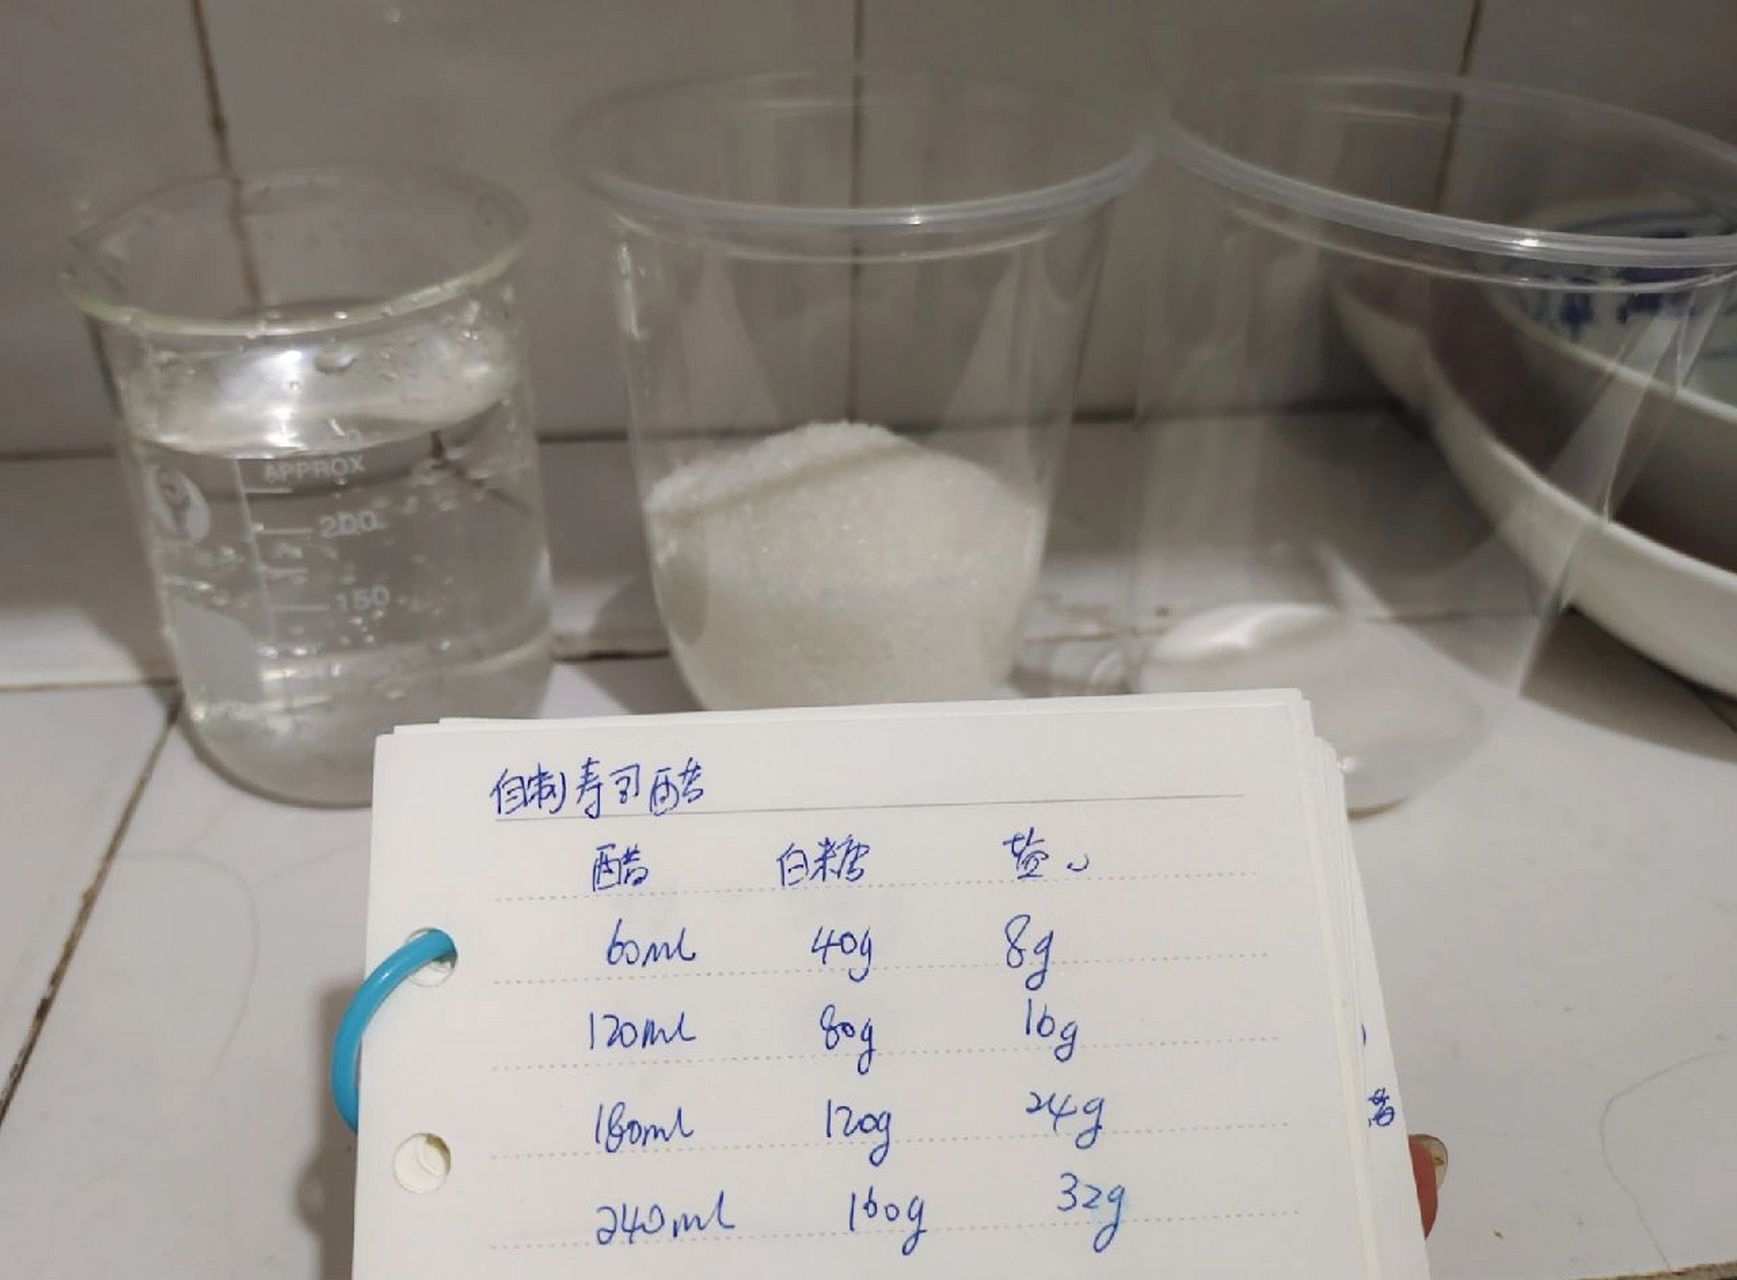 APPROX
200
150
自制寿司醋
醋 白糖 盐
60ml 40g 8g
120ml 80g 16g
180ml 120g 24g
240ml 160g 32g